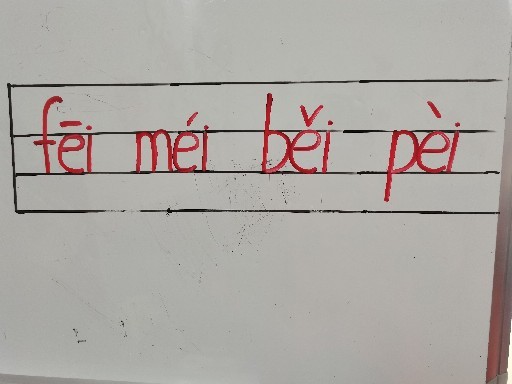 fēi méi běi pèi